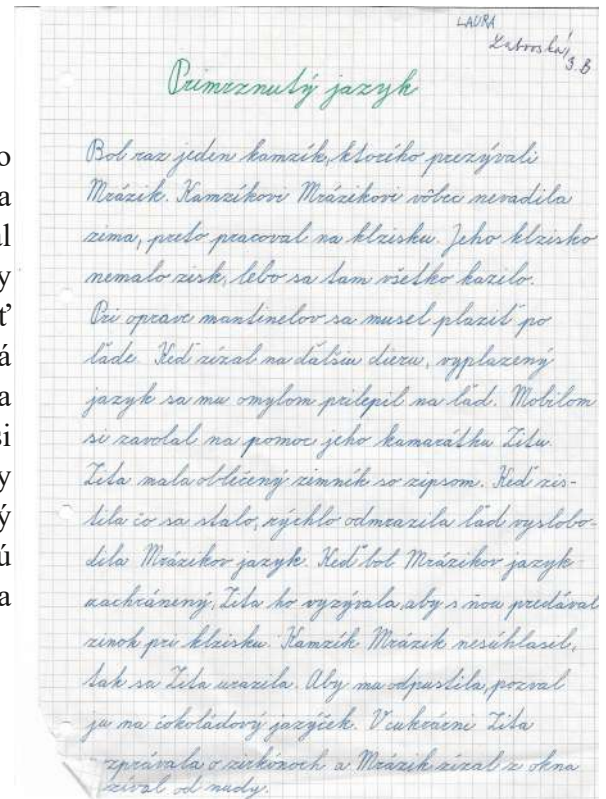 LAURA
Laborská
3. B
Primrznutý jazyk
o
a
l
y
ť
á
a
si
y
ý
ú
a
Bol raz jeden kamzík, ktorého prezývali
Mrázik. Kamzíkovi Mrázikovi vôbec nevadila
zima, preto pracoval na klzisku. Jeho klzisko
nemalo zisk, lebo sa tam všetko kazilo.
Pri oprave mantinelov sa musel plaziť po
ľade. Keď zízal na ďalšiu dieru, vyplazený
jazyk sa mu omylom prilepil na ľad. Mobilom
si zavolal na pomoc jeho kamarátku Zitu.
Zita mala oblečený zimník so zipsom. Keď zis-
tila čo sa stalo, rýchlo odmrazila ľad vyslobo-
dila Mrázikov jazyk. Keď bol Mrázikov jazyk
zachránený, Zita ho vyzývala, aby s ňou predával
zinok pri klzisku. Kamzík Mrázik nesúhlasil,
tak sa Zita urazila. Aby mu odpustila, pozval
ju na čokoládový jazýček. V cukrárni Zita
zprávala o zirkónoch a Mrázik zízal z okna
zíval od nudy.